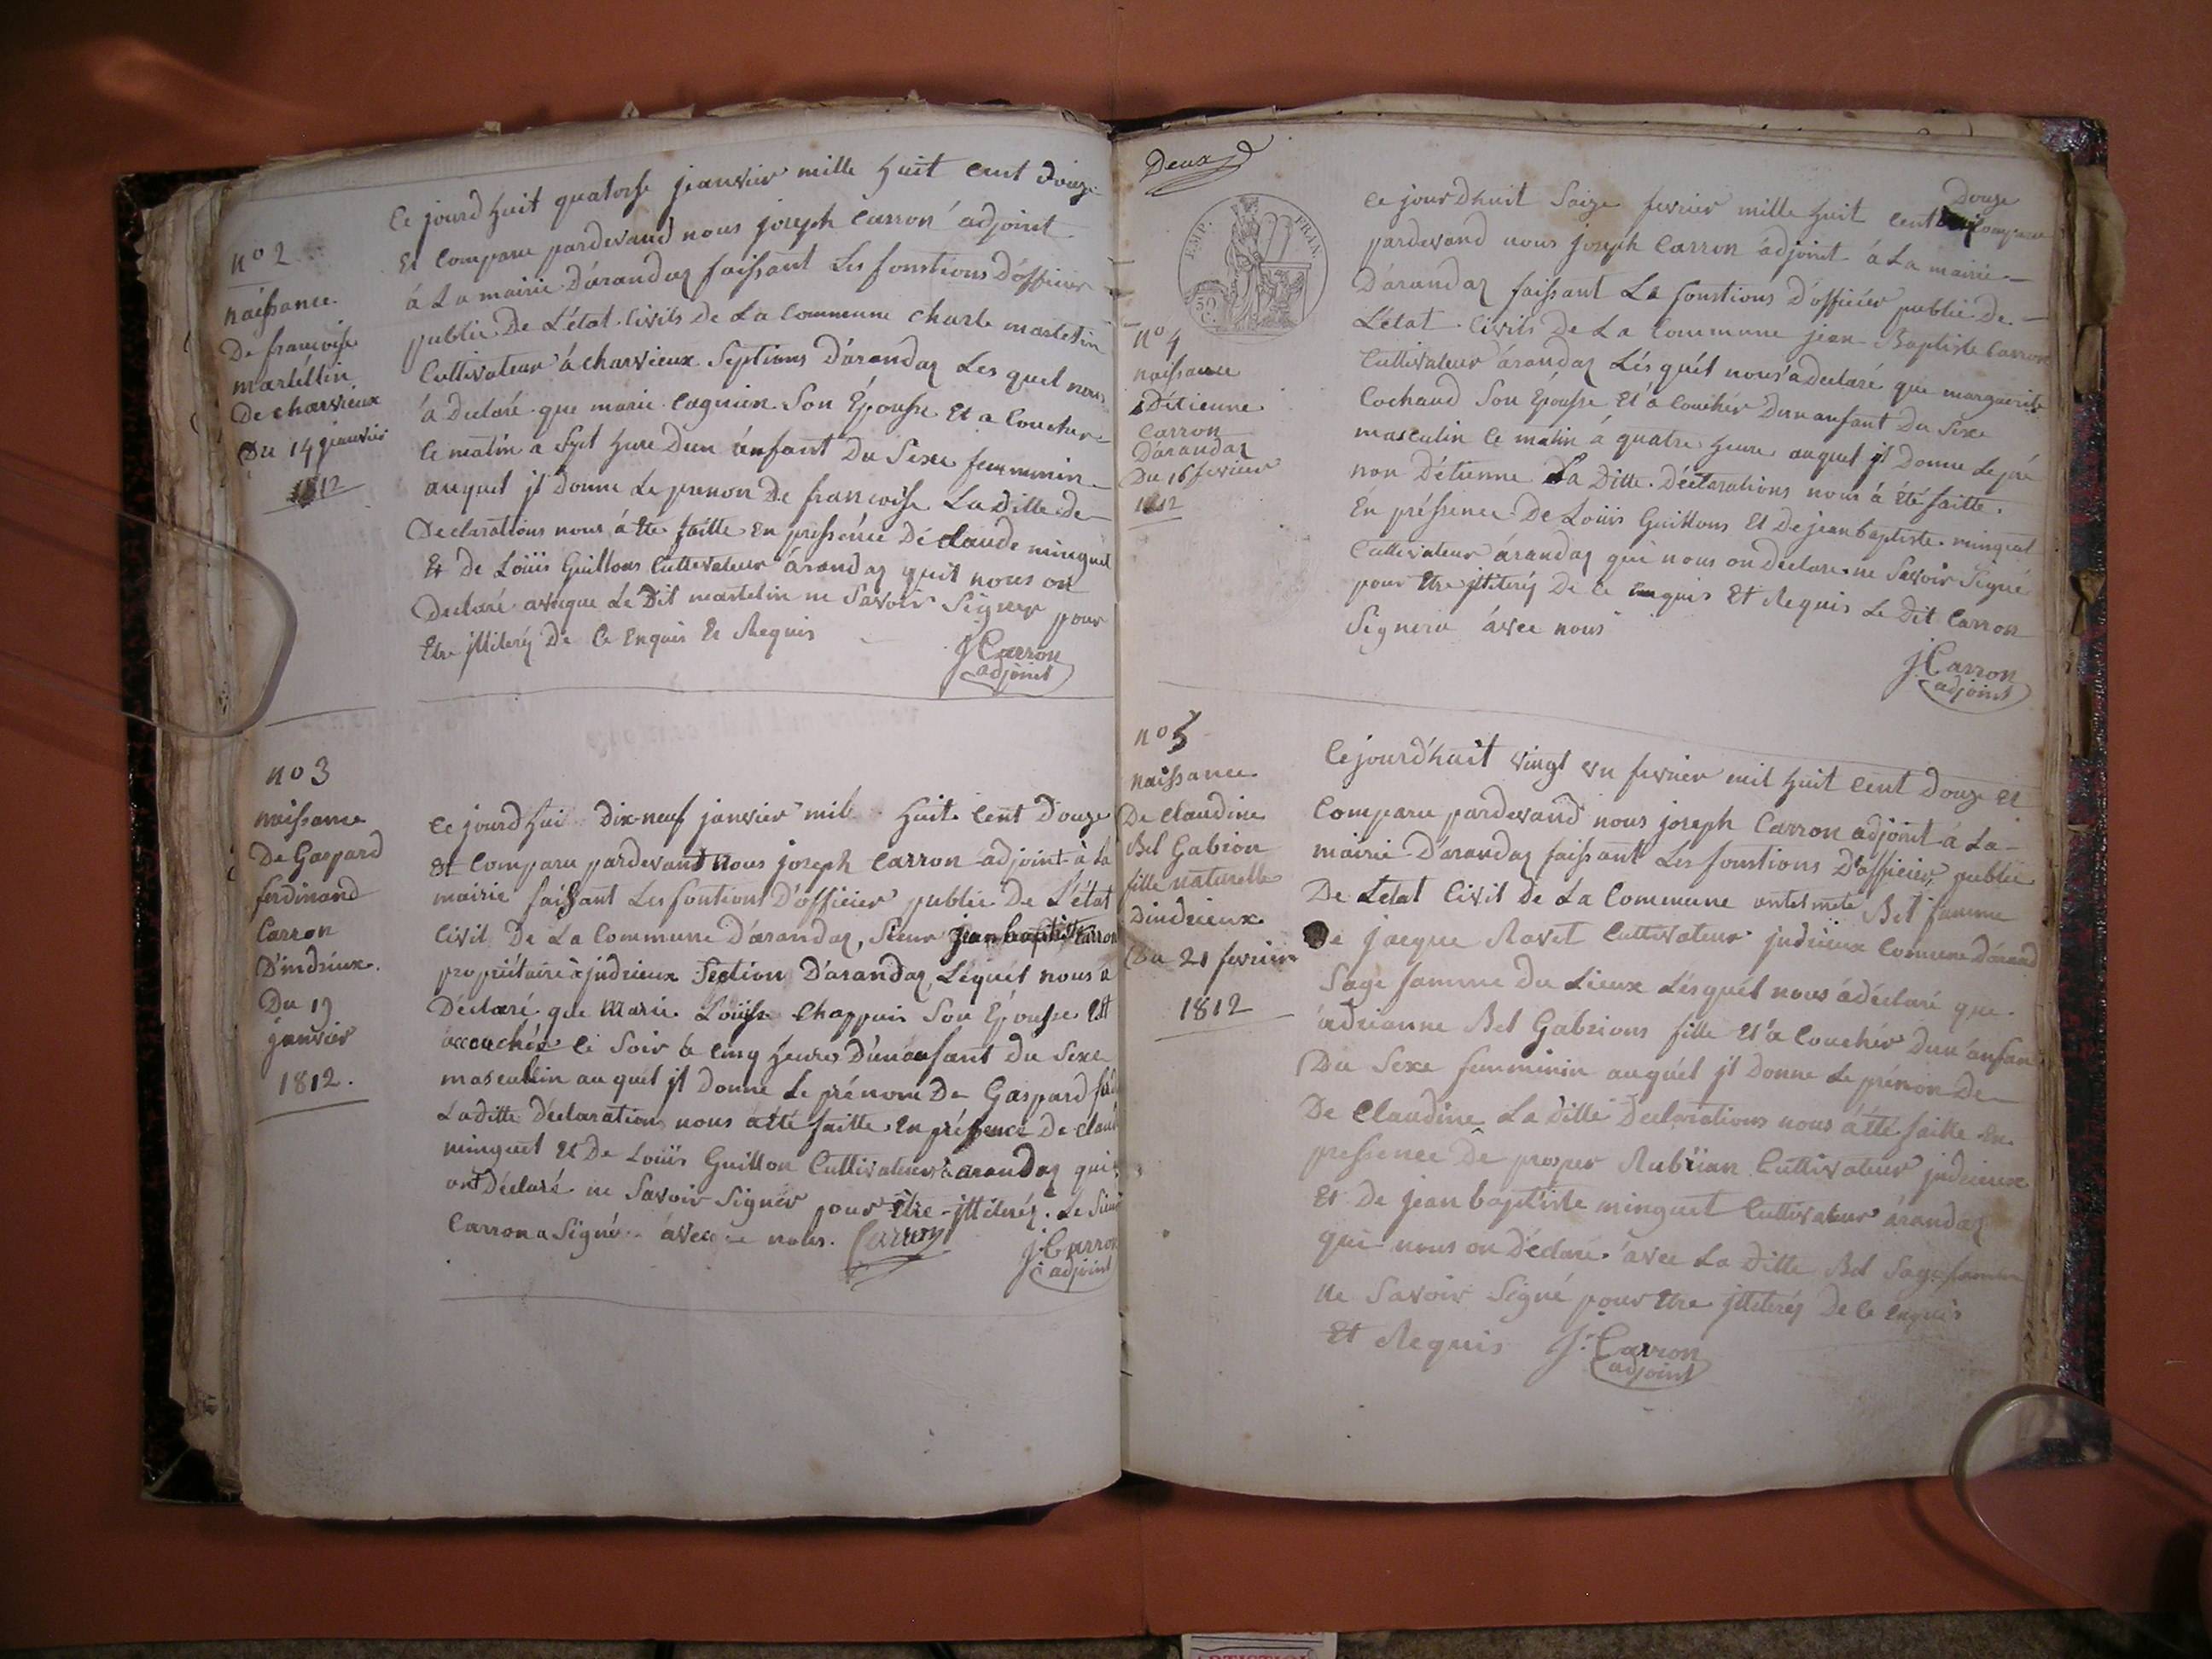 n° 2
naissance
De francoise
martellin
De charvieux
Du 14 jeanvier
1812
Ce jourd huit quatorse jeanvier mille huit cent douze
Et Comparu pardevand nous joseph Carron adjoint
á La mairie D'arandas faissant Les fonstions D'officier
public De L'état Civils De La Commune charle martelin
Cultivateur á charvieux Septions D'arandas Les quel nous
á declaré que marie Cagnien Son Épousse Et a Coucher
Ce matin a Sept hure Dun ánfant Du Sexe femminin
auquel jl Donne Le prenon De francoise La ditte de
Declarations nous á tte faitte En pressénce De Claude minguet
Et De Loüis Guillons Cultivateur árandas quit nous on
Declaré avecque Le Dit martelin ne Savoir Signer pour
Etre jlliterés De Ce Enquis Et Requis
J Carron
adjoint
no 3
naissance
De Gaspard
ferdinand
Carron
D'indrieux.
Du 19
janvier
1812.
Ce jourd hui Dix-neuf janvier mil huit Cent Douze
Et Comparu pardevant Nous joseph Carron adjoint à La
mairie faissant Les fontions D'officier public De L'état
Civil De La Commune D'arandas, Sieur jean baptiste Carron
propriétaire à judrieux Section D'arandas, Léquel nous a
Déclaré que Marie Louise Chappuis Son Épousse Est
accouchée Ce Soir à Cinq heures D'un anfant du Sexe
masculin au quel jl donne Le prénom De Gaspard
Laditte déclarations nous a été faitte En présence De
minguet Et De Loüis Guillon Cultivateurs à arandas qui
ont Déclaré ne Savoir Signer pour être jlliterés. Le Sieur
Carron a Signé avec nous. Carron
J. Carron
adjoint
Deux
EMP. FRAN.
50 C.
n° 4
naissance
D'étienne
Carron
D'arandas
Du 16 fevrier
1812
Douze
Ce jour Dhuit Saize fevrier mille huit Cent Comparu
pardevand nous joseph Carron adjoint á La mairie
D'arandas faissant La fonstions D'officier public De
L'état Civils De La Commune jean-Baptiste Carron
Cultivateur árandas Lésquél nous a declaré que marguerite
Cochaud Son Épousse Et á Couchér Dun anfant Du Sexe
masculin Ce matin á quatre heure auquel jl Donne Le pré
non D'étienne La Ditte Déclarations nous á été faitte
En préssence De Loüis Guillons Et De jean baptiste minguet
Cultivateur árandas qui nous on declare ne Savoir Signé
pour Etre jlliterés De Ce Enquis Et Requis Le Dit Carron
Signera ávec nous
J. Carron
adjoint
n° 5
naissance
De Claudine
Bel Gabrion
fille naturelle
Dindrieux
Du 21 fevrier
1812
Ce jourd'huit vingt un fevrier mil huit Cent Douze Et
Comparu pardevand nous joseph Carron adjoint á La
mairie D'arandas faissant Les fonstions D'officier public
De L'etat Civil De La Commune Bel famme
De jacque Ravet Cultivateur judrieux Comune
Sage famme Du Lieux Lésquél nous á déclaré que
adrianne Bel Gabrions fille Et á Couchér Dun anfan
Du Sexe femminin auquél jl Donne Le prénon De
De Claudine La ditte Declarations nous á tté faitte En
pressence De prosper Cultivateur judrieux
Et De jean baptiste minguet Cultivateur árandas
qui nous on Déclaré avec La Ditte Bel Sage famme
Ne Savoir Signé pour Etre jlliterés De Ce Enquis
Et Requis J. Carron
adjoint